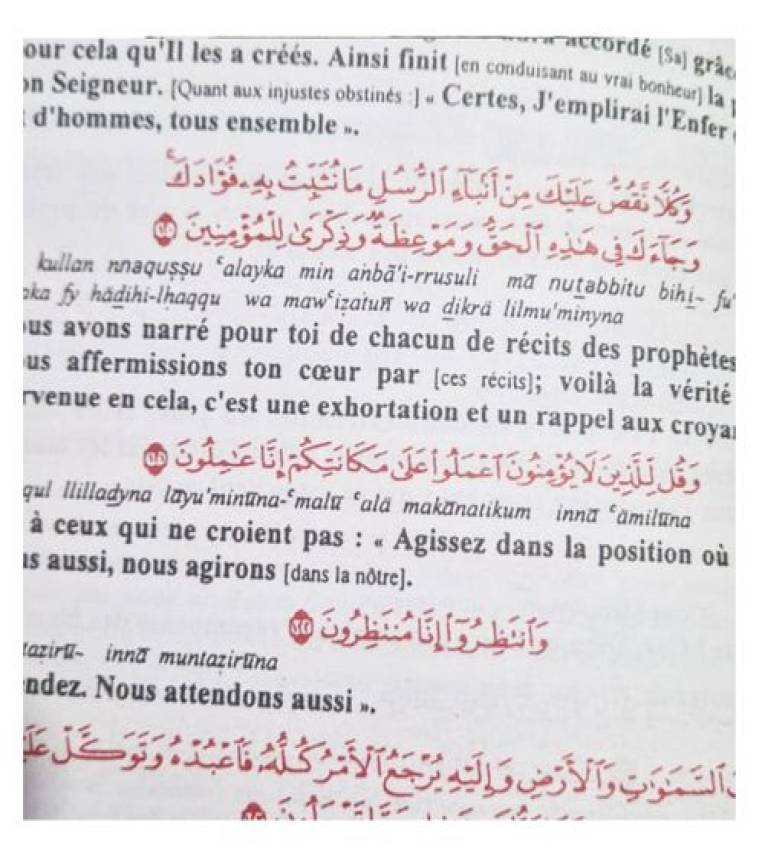 accordé [Sa] grâc
our cela qu'Il les a créés. Ainsi finit [en conduisant au vrai bonheur] la
n Seigneur. [Quant aux injustes obstinés :] « Certes, J'emplirai l'Enfer
d'hommes, tous ensemble ».
وَكُلًّا نَّقُصُّ عَلَيْكَ مِنْ أَنۢبَآءِ ٱلرُّسُلِ مَا نُثَبِّتُ بِهِۦ فُؤَادَكَ ۚ
وَجَآءَكَ فِى هَـٰذِهِ ٱلْحَقُّ وَمَوْعِظَةٌ وَذِكْرَىٰ لِلْمُؤْمِنِينَ ١٢٠
kullan nnaquṣṣu ʿalayka min anbā'i-rrusuli mā nuṯabbitu bihi̱~ fu'
ka fy hāḏihi-lḥaqqu wa mawʿiẓatuñ wa ḏikrā lilmu'minyna
us avons narré pour toi de chacun de récits des prophètes
us affermissions ton cœur par [ces récits]; voilà la vérité
rvenue en cela, c'est une exhortation et un rappel aux croya
وَقُل لِّلَّذِينَ لَا يُؤْمِنُونَ ٱعْمَلُوا۟ عَلَىٰ مَكَانَتِكُمْ إِنَّا عَـٰمِلُونَ ١٢١
qul llillaḏyna lāyu'minūna-ʿmalū ʿalā makānatikum innā ʿāmilūna
à ceux qui ne croient pas : « Agissez dans la position où
s aussi, nous agirons [dans la nôtre].
وَٱنتَظِرُوٓا۟ إِنَّا مُنتَظِرُونَ ١٢٢
taẓirū~ innā muntaẓirūna
ndez. Nous attendons aussi ».
ٱلسَّمَـٰوَٰتِ وَٱلْأَرْضِ وَإِلَيْهِ يُرْجَعُ ٱلْأَمْرُ كُلُّهُۥ فَٱعْبُدْهُ وَتَوَكَّلْ عَلَ